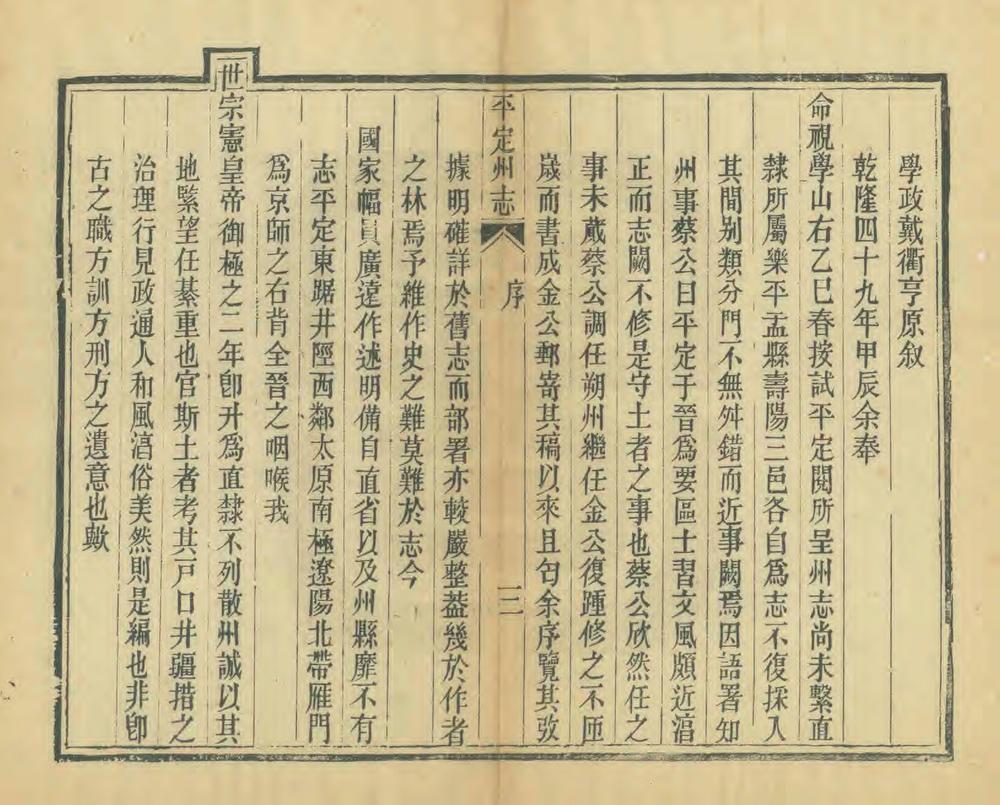 學政戴衢亨原叙
乾隆四十九年甲辰余奉
命視學山右乙巳春按試平定閱所呈州志尚未繫直
隸所屬樂平盂縣壽陽三邑各自爲志不復採入
其間别類分門不無舛錯而近事闕焉因語署知
州事蔡公曰平定于晉爲要區士習文風頗近淳
正而志闕不修是守土者之事也蔡公欣然任之
事未蕆蔡公調任朔州繼任金公復踵修之不匝
歲而書成金公郵寄其稿以來且匄余序覽其攷
平定州志 序 二
據明確詳於舊志而部署亦較嚴整葢幾於作者
之林焉予維作史之難莫難於志今
國家幅員廣遠作述明備自直省以及州縣靡不有
志平定東踞井陘西鄰太原南極遼陽北帶雁門
爲京師之右背全晉之咽喉我
世宗憲皇帝御極之二年卽升爲直隸不列散州誠以其
地緊望任綦重也官斯土者考其戸口井疆措之
治理行見政通人和風淳俗美然則是編也非卽
古之職方訓方刑方之遺意也歟